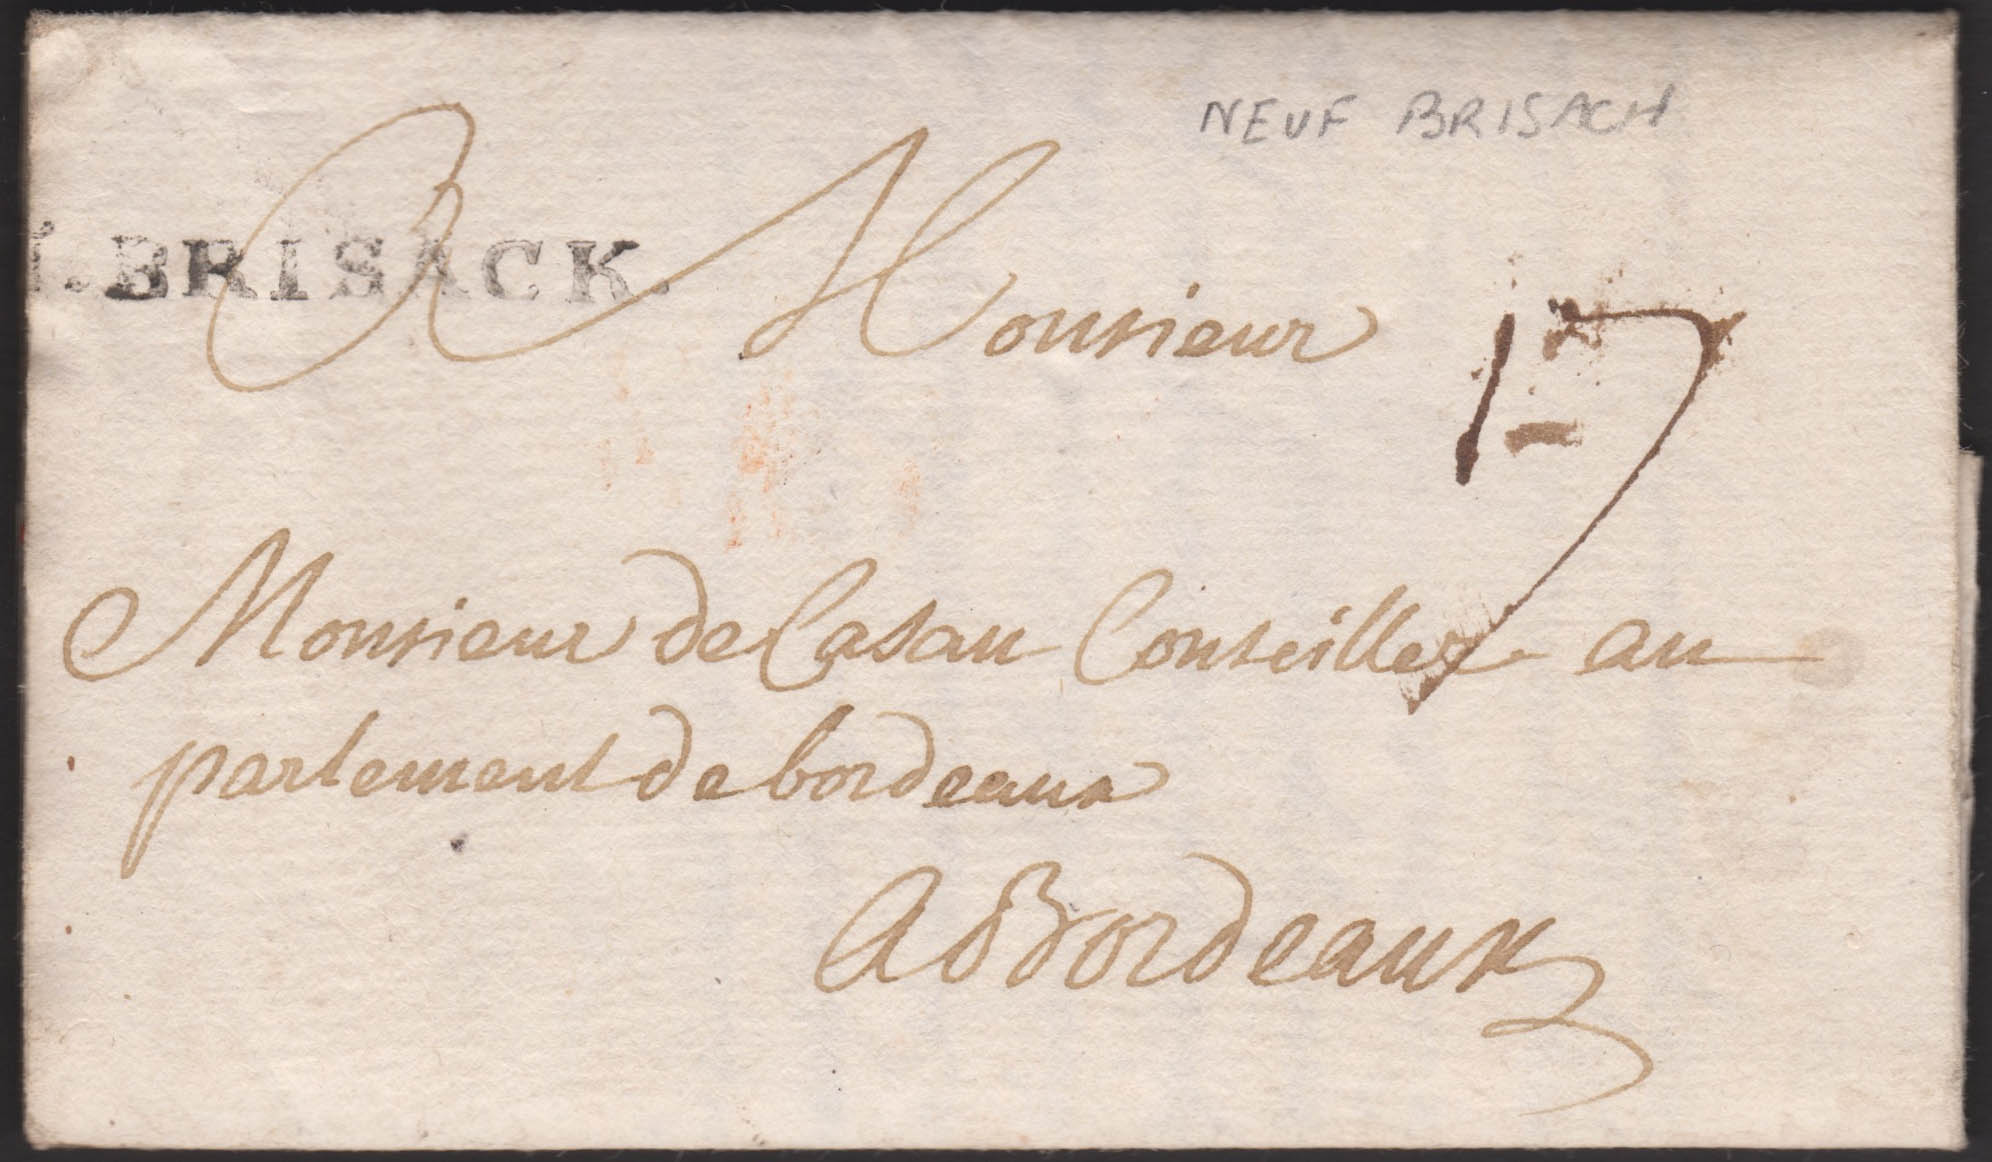 NEUF BRISACH
. BRISACK.
A Monsieur
17
Monsieur de Casau Conseiller au
parlement de bordeaux
A Bordeaux